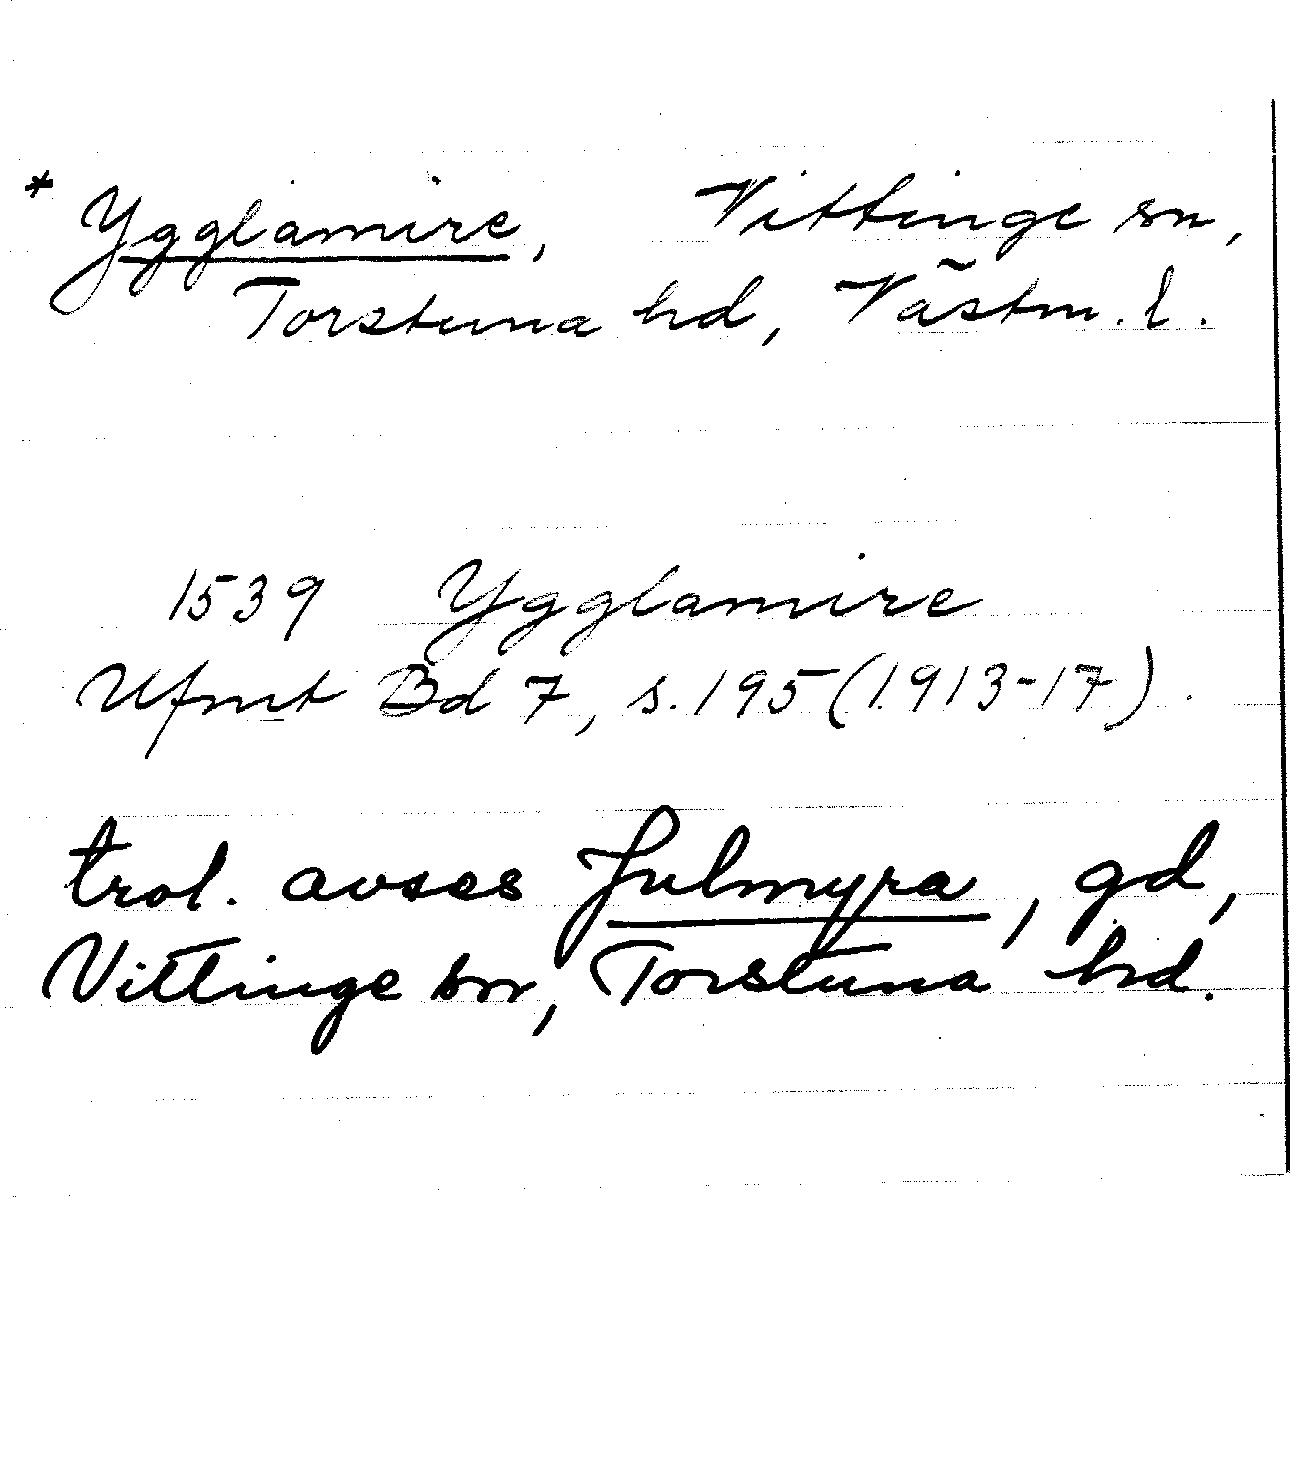 * Ygglamire, Vittinge sn,
Torstuna hd, Västm. l.
1539 Ygglamire
Ufmt Bd 7, s. 195 (1913-17).
trol. avses Julmyra, gd,
Vittinge sn, Torstuna hd.